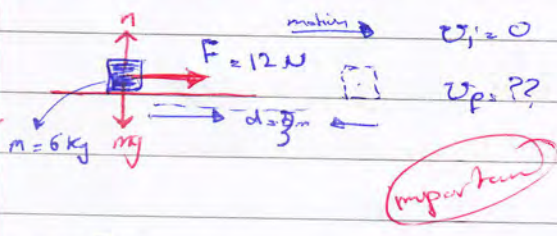 n
motion
v_i = 0
F = 12 N
v_f = ??
d = 3 m
m = 6 kg
mg
important